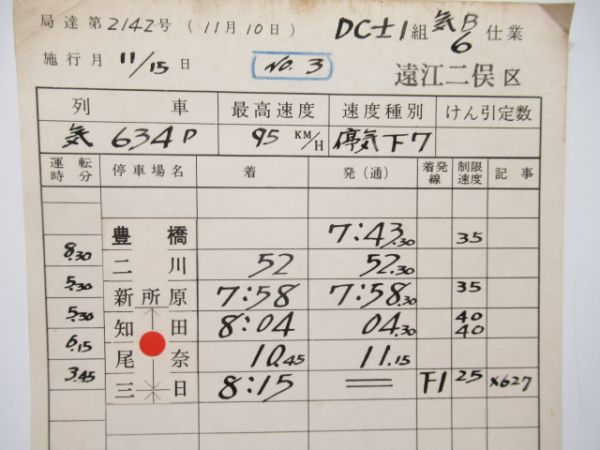 局達第2142号 (11月10日) DC士1組 気B6仕業
施行月11/15日 No.3 遠江二俣区
列車 最高速度 速度種別 けん引定数
気634P 95KM/H 停気下7
運転時分 停車場名 着 発(通) 着発線 制限速度 記事
豊橋 7:43.30 35
8.30
二川 52 52.30
5.30
新所原 7:58 7:58.30 35
5.30
知田 8:04 04.30 40 40
6.15
尾奈 10.45 11.15
3.45
三日 8:15 F1 25 ×627